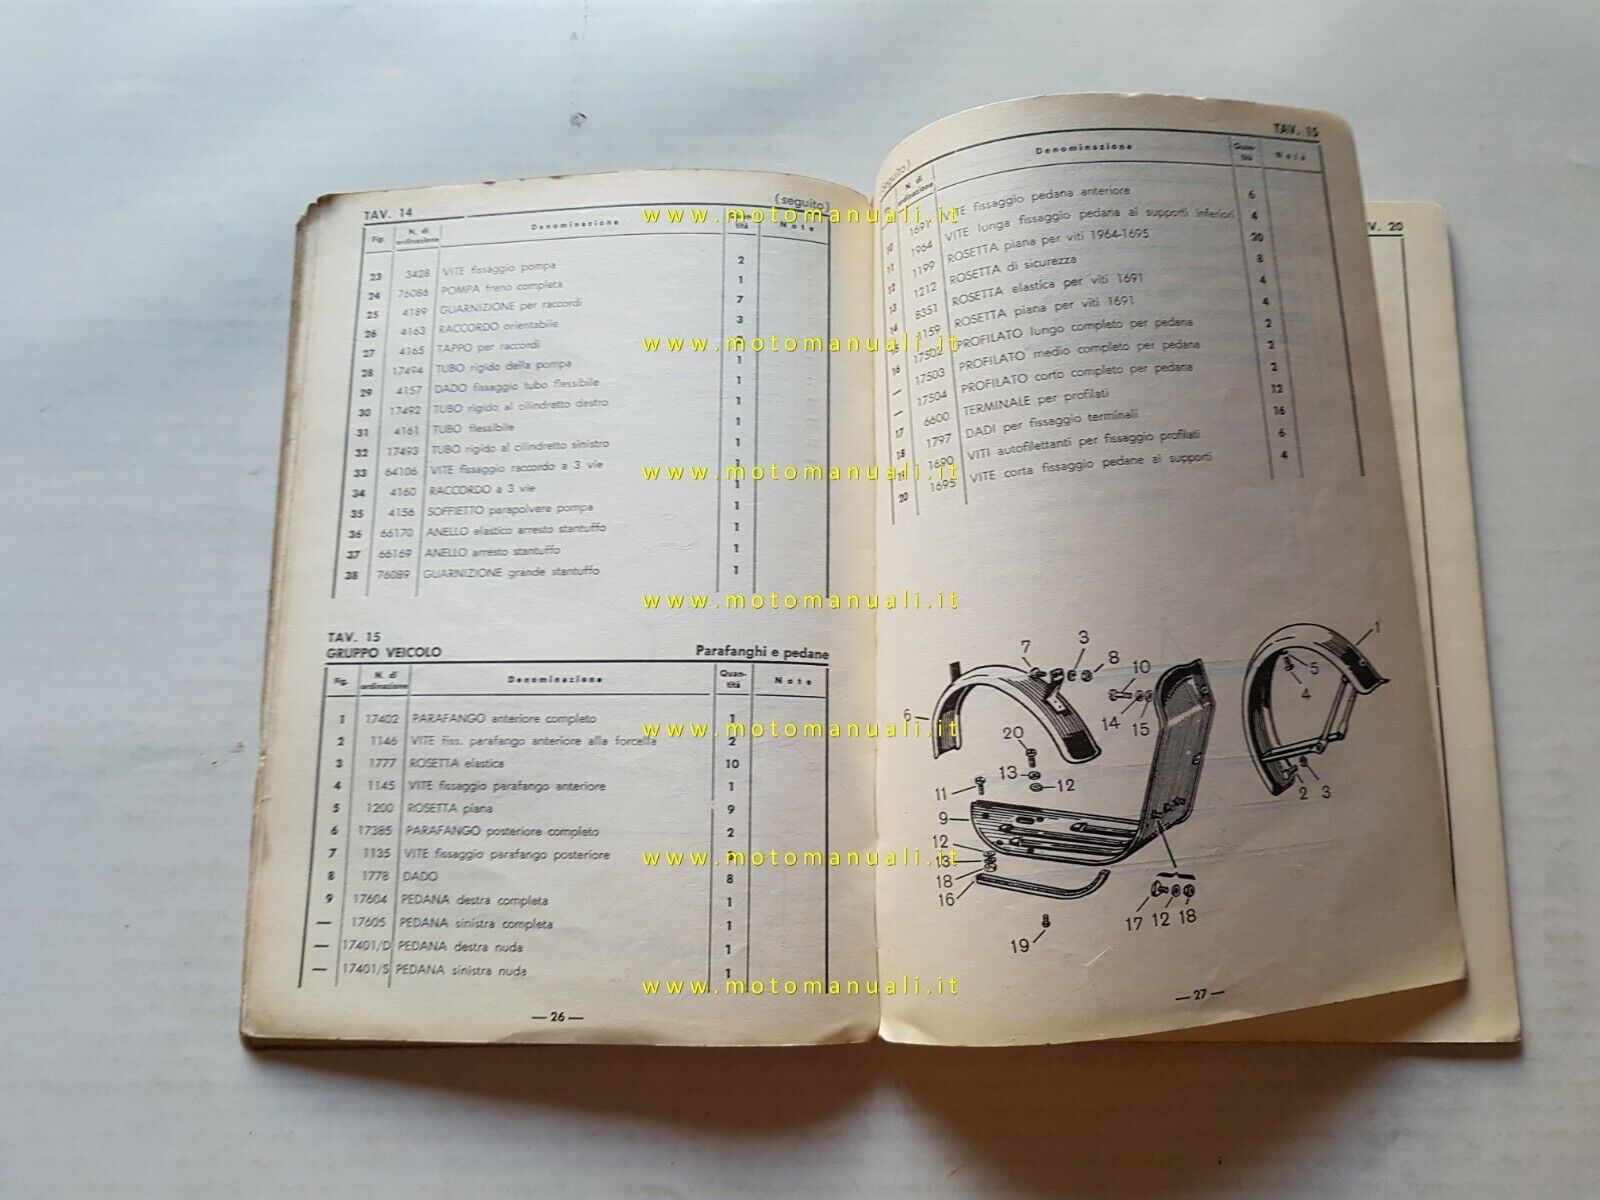 TAV. 14 (seguito)
Fig. N. di ordinazione Denominazione Quantità Note
23 3428 VITE fissaggio pompa 2
24 76086 POMPA freno completa 1
25 4189 GUARNIZIONE per raccordi 7
26 4163 RACCORDO orientabile 3
27 4165 TAPPO per raccordi
28 17494 TUBO rigido della pompa 1
29 4157 DADO fissaggio tubo flessibile 1
30 17492 TUBO rigido al cilindretto destro 1
31 4161 TUBO flessibile 1
32 17493 TUBO rigido al cilindretto sinistro 1
33 64106 VITE fissaggio raccordo a 3 vie 1
34 4160 RACCORDO a 3 vie 1
35 4156 SOFFIETTO parapolvere pompa 1
36 66170 ANELLO elastico arresto stantuffo 1
37 66169 ANELLO arresto stantuffo 1
38 76089 GUARNIZIONE grande stantuffo 1
TAV. 15
GRUPPO VEICOLO Parafanghi e pedane
Fig. N. di ordinazione Denominazione Quan-tità Note
1 17402 PARAFANGO anteriore completo 1
2 1146 VITE fiss. parafango anteriore alla forcella 2
3 1777 ROSETTA elastica 10
4 1145 VITE fissaggio parafango anteriore 1
5 1200 ROSETTA piana 9
6 17385 PARAFANGO posteriore completo 2
7 1135 VITE fissaggio parafango posteriore
8 1778 DADO 8
9 17604 PEDANA destra completa 1
— 17605 PEDANA sinistra completa 1
— 17401/D PEDANA destra nuda 1
— 17401/S PEDANA sinistra nuda 1
— 26 —
(seguito) TAV. 15
N. di ordinazione Denominazione Quan-tità Note
10 1691 VITE fissaggio pedana anteriore 6
11 1964 VITE lunga fissaggio pedana ai supporti inferiori 4
12 1199 ROSETTA piana per viti 1964-1695 20
13 1212 ROSETTA di sicurezza 8
14 8351 ROSETTA elastica per viti 1691 4
15 1159 ROSETTA piana per viti 1691 4
16 17502 PROFILATO lungo completo per pedana 2
— 17503 PROFILATO medio completo per pedana 2
— 17504 PROFILATO corto completo per pedana 2
17 6600 TERMINALE per profilati 12
18 1797 DADI per fissaggio terminali 16
19 1690 VITI autofilettanti per fissaggio profilati 6
20 1695 VITE corta fissaggio pedane ai supporti 4
7 3 8 10 1
6 14 15 5 4
20
13 12
11
9
12
13
18
16
2 3
17 12 18
19
— 27 —
V. 20
www.motomanuali.it
www.motomanuali.it
www.motomanuali.it
www.motomanuali.it
www.motomanuali.it
www.motomanuali.it
www.motomanuali.it